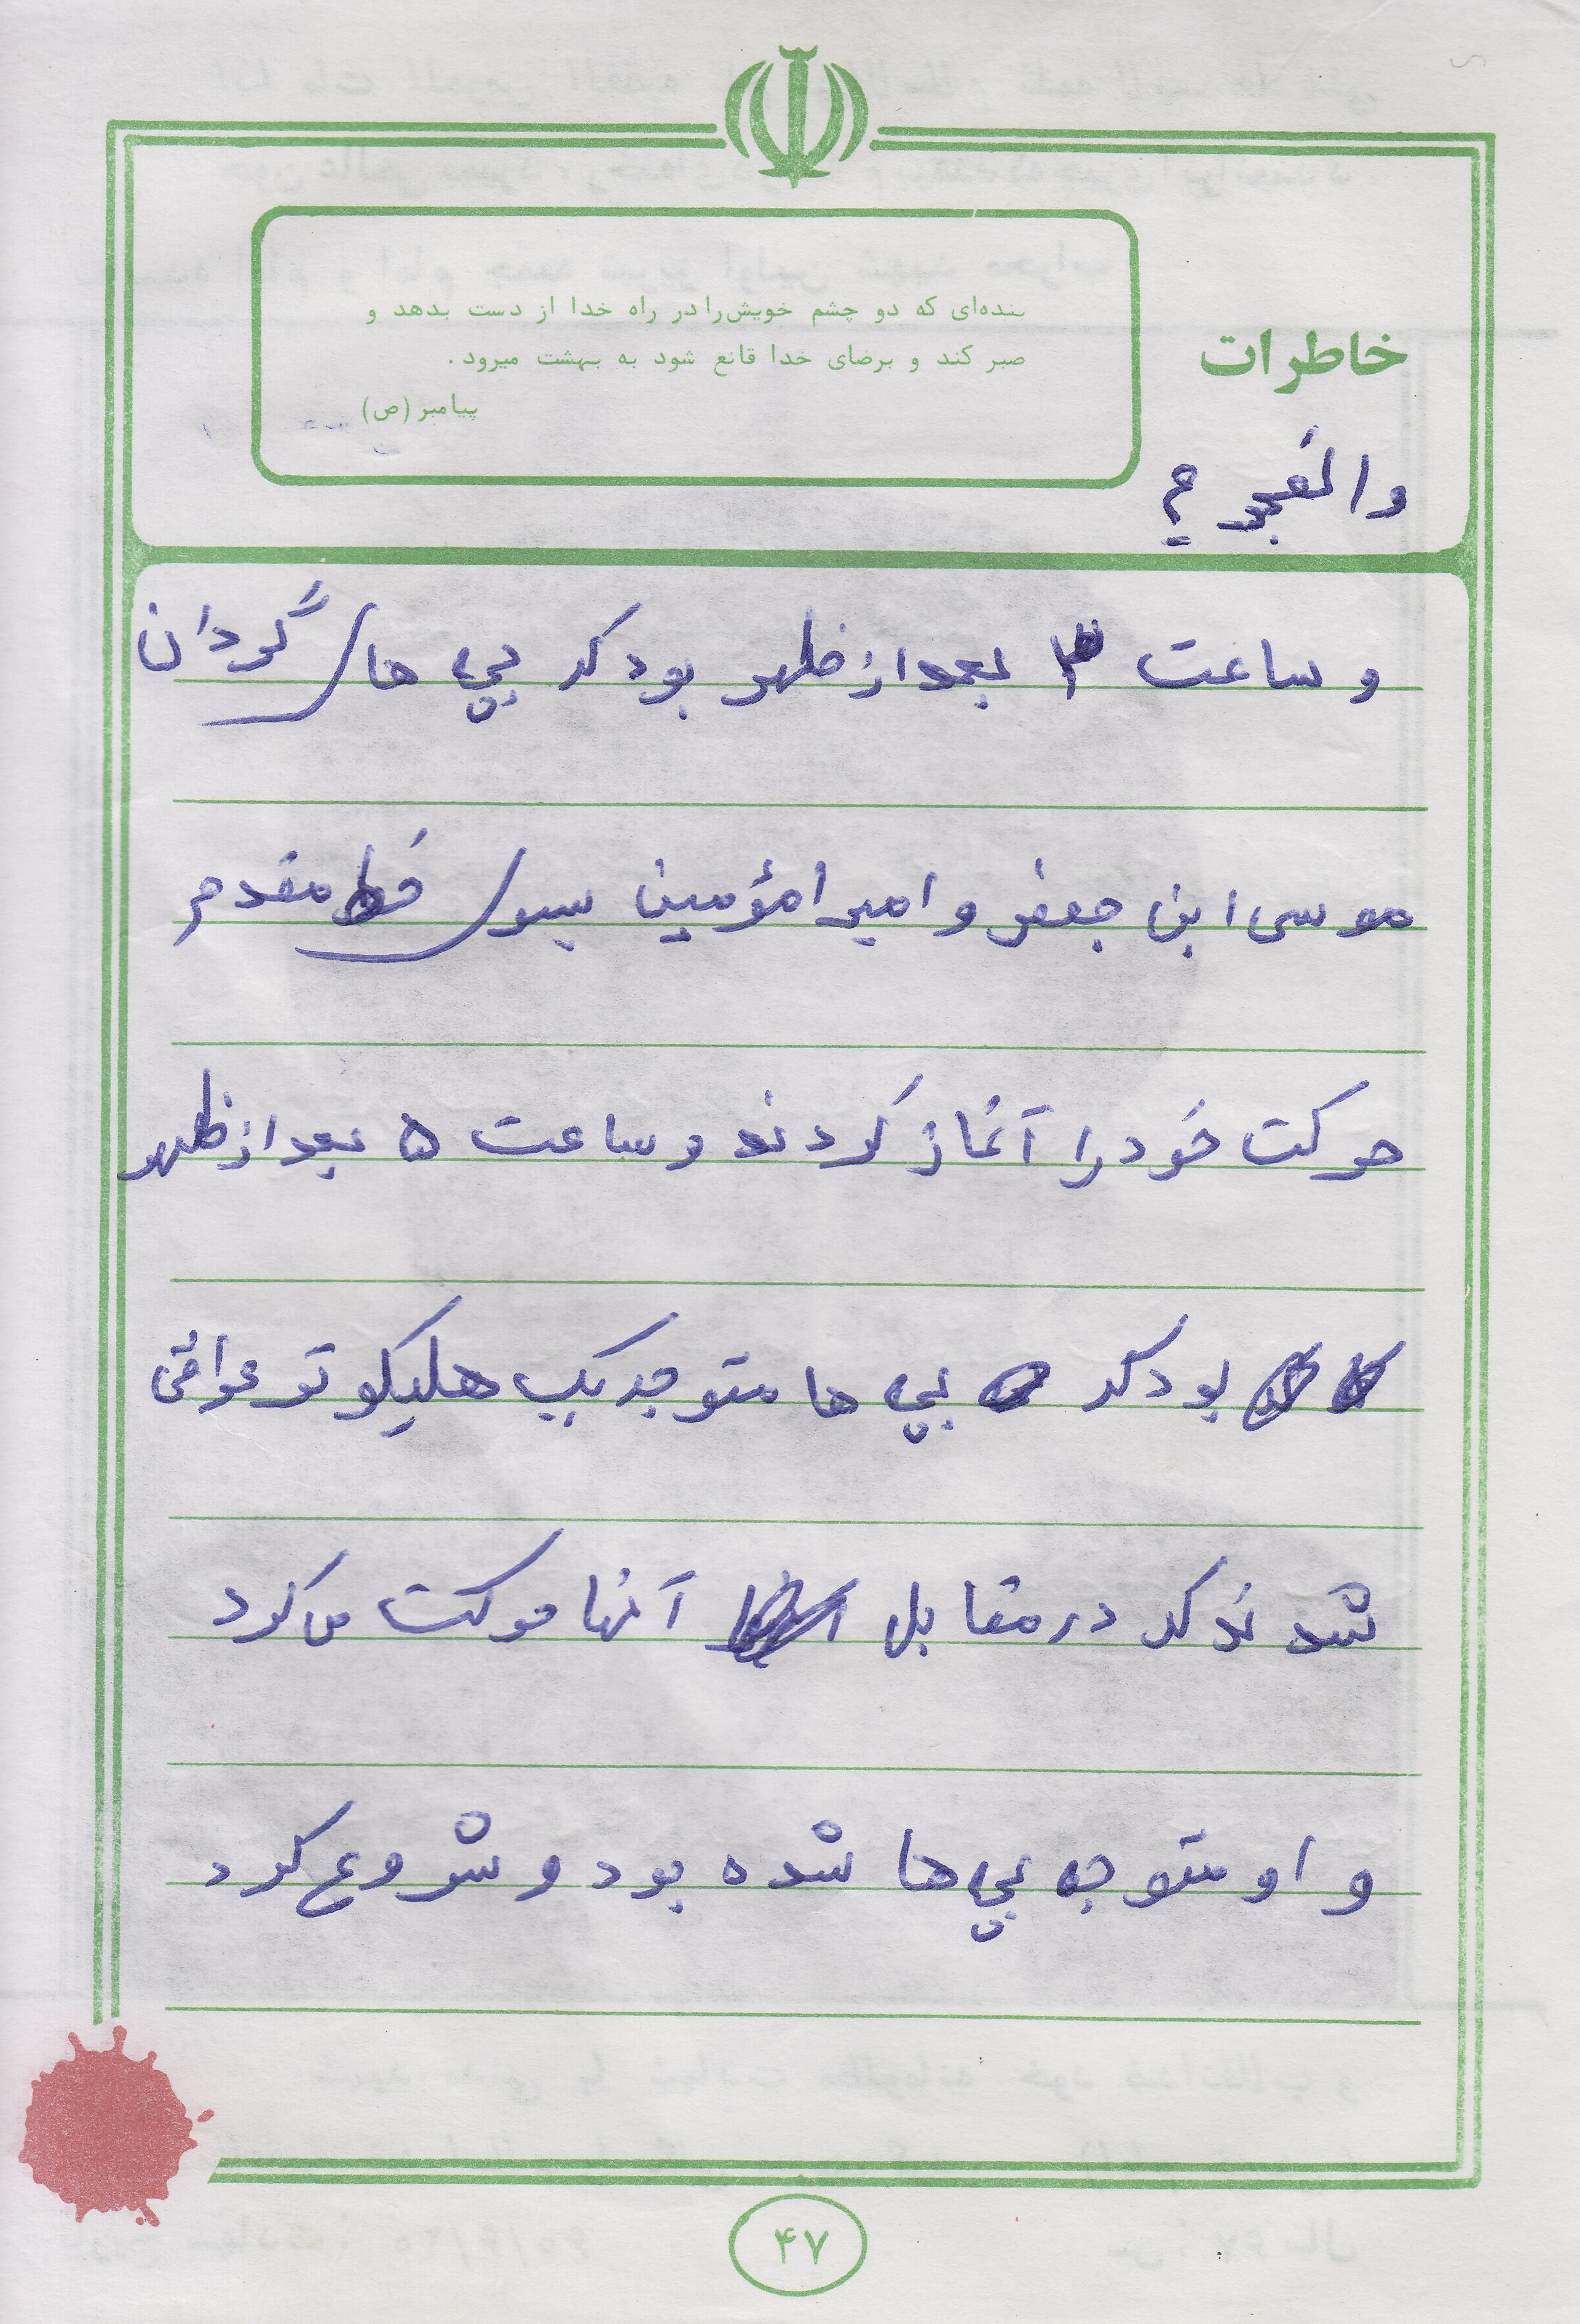 بنده‌ای که دو چشم خویش را در راه خدا از دست بدهد و
صبر کند و برضای خدا قانع شود به بهشت میرود.
پیامبر (ص)
خاطرات
والفجر ۲
و ساعت ۳ بعد از ظهر بود که بچه ها گردان
موسی ابن جعفر و امیر امؤمین بسو خط مقدم
حرکت خود را آغاز کردند و ساعت ۵ بعد از ظهر
بود که بچه ها متوجه یک هلیکوتر عراقی
شدند که در مقابل آنها حرکت می کرد
و او متوجه بچه ها شده بود و شروع کرد
۴۷